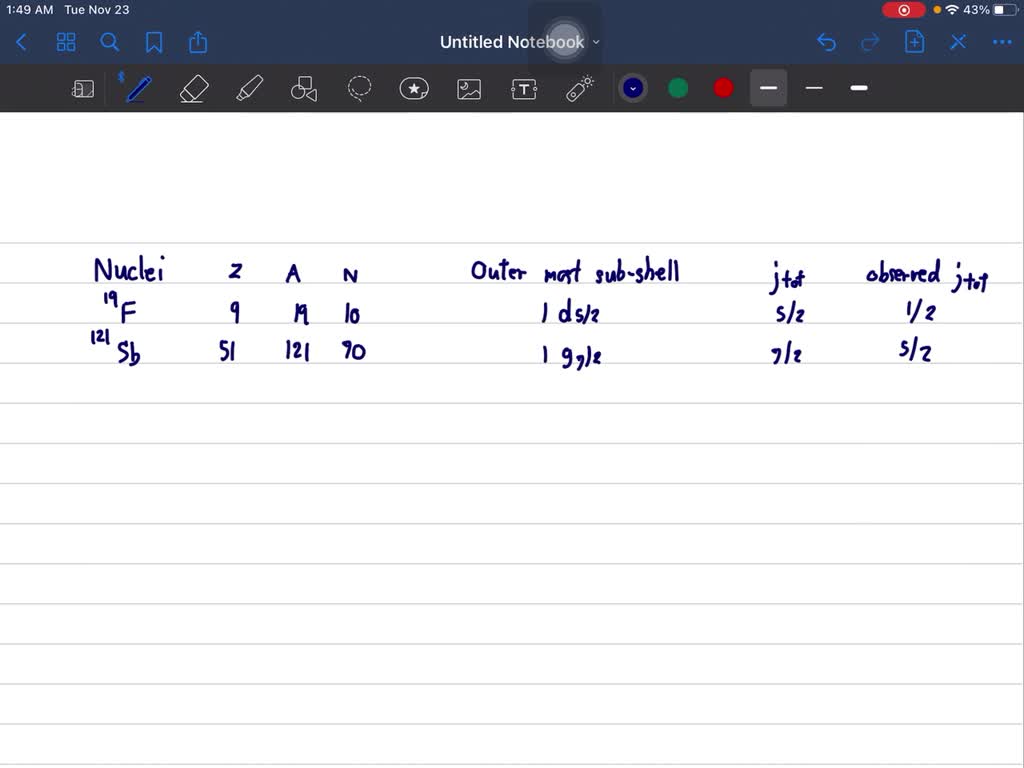 1:49 AM Tue Nov 23 43%
Untitled Notebook
Nuclei Z A N Outer most sub-shell jtot observed jtot
19F 9 19 10 1 d5/2 5/2 1/2
121Sb 51 121 70 1 g7/2 7/2 5/2